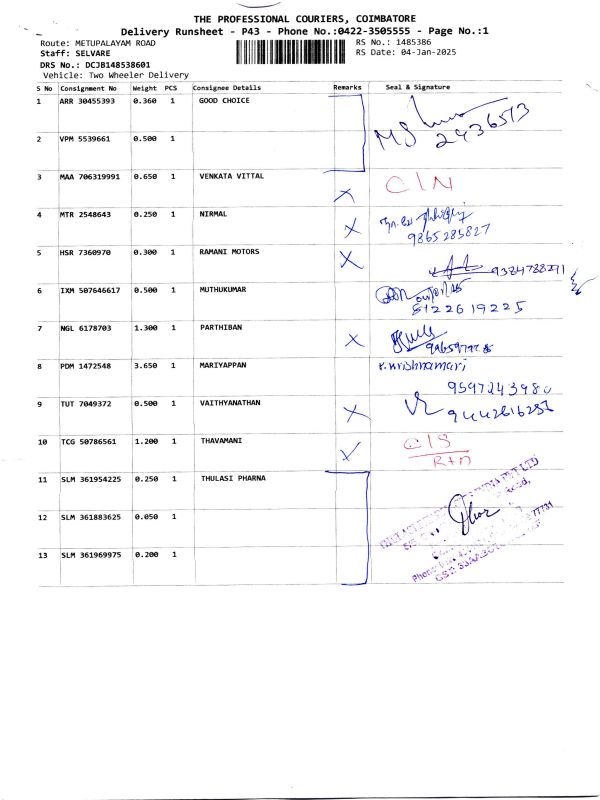 THE PROFESSIONAL COURIERS, COIMBATORE
Delivery Runsheet - P43 - Phone No.:0422-3505555 - Page No.:1
Route: METUPALAYAM ROAD RS No.: 1485386
Staff: SELVARE RS Date: 04-Jan-2025
DRS No.: DCJB148538601
Vehicle: Two Wheeler Delivery
S No Consignment No Weight PCS Consignee Details Remarks Seal & Signature
1 ARR 30455393 0.360 1 GOOD CHOICE
2436513
2 VPM 5539661 0.500 1
3 MAA 706319991 0.650 1 VENKATA VITTAL X C/N
4 MTR 2548643 0.250 1 NIRMAL X
9865285827
5 HSR 7360970 0.300 1 RAMANI MOTORS X
9384788291
6 IXM 507646617 0.500 1 MUTHUKUMAR
8122619225
7 NGL 6178703 1.300 1 PARTHIBAN X
8 PDM 1472548 3.650 1 MARIYAPPAN
9 TUT 7049372 0.500 1 VAITHYANATHAN X
10 TCG 50786561 1.200 1 THAVAMANI C/S
Rtn
11 SLM 361954225 0.250 1 THULASI PHARNA
12 SLM 361883625 0.050 1
13 SLM 361969975 0.200 1